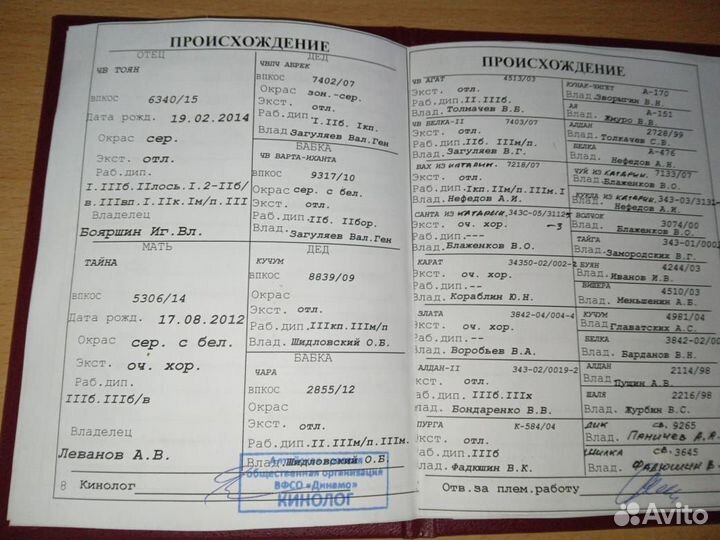 ПРОИСХОЖДЕНИЕ
ОТЕЦ
ЧВ ТОЯН
ВПКОС 6340/15
Дата рожд. 19.02.2014
Окрас сер.
Экст. отл.
Раб.дип.
I.IIIб.IIлось.I.2-IIб/
в.IIIвп.I.IIк.Iм/п.III
Владелец
Бояршин Иг.Вл.
МАТЬ
ТАЙНА
ВПКОС 5306/14
Дата рожд. 17.08.2012
Окрас сер. с бел.
Экст. оч. хор.
Раб.дип.
IIIб.IIIб/в
Владелец
Леванов А.В.
8 Кинолог
ДЕД
ЧВПЧ АБРЕК
ВПКОС 7402/07
Окрас зон.-сер.
Экст. отл.
Раб.дип. I.IIб. Iкп.
Влад. Загуляев Вал.Ген
БАБКА
ЧВ ВАРТА-ИХАНТА
ВПКОС 9317/10
Окрас сер. с бел.
Экст. отл.
Раб.дип. IIб. IIбор.
Влад. Загуляев Вал.Ген
ДЕД
КУЧУМ
ВПКОС 8839/09
Окрас
Экст. отл.
Раб.дип. IIIкп.IIIм/п
Влад. Шидловский О.Б.
БАБКА
ЧАРА
ВПКОС 2855/12
Окрас
Экст. отл.
Раб.дип. II.IIIм/п.IIIм.
Влад. Шидловский О.Б.
общественная организация
ВФСО «Динамо»
КИНОЛОГ
ПРОИСХОЖДЕНИЕ
ЧВ АГАТ 4513/03
Экст. отл.
Раб.дип. II.IIIб.
Влад. Толмачев В.В.
ЧВ БЕЛКА-II 7403/07
Экст. отл.
Раб.дип. IIIм/п.
Влад. Загуляев В.Г.
ВАХ ИЗ КАТАРИИ. 7218/07
Экст. отл.
Раб.дип. Iкп.IIм/п.IIIм.I
Влад. Нефедов А.И.
САНТА ИЗ КАТАРИИ. 343С-05/31125
Экст. оч. хор. -3
Раб.дип.--
Влад. Блаженков В.О.
КАРАТ 34350-02/002-2
Экст. оч. хор.
Раб.дип. --
Влад. Кораблин Ю.Н.
ЗЛАТА 3842-04/004-4
Экст. оч. хор.
Раб.дип.--
Влад. Воробьев В.А.
АЛДАН-II 343-02/0019-2
Экст. отл.
Раб.дип. IIIб.IIIх
Влад. Бондаренко В.В.
ПУРГА К-584/04
Экст. отл.
Раб.дип. IIIб
Влад. Фадюшин В.К.
КУНАК-ЧИГЕТ А-170
Влад. Зворыгин В.Н.
АЯ А-151
Влад. Жмуро В.В.
АЛДАН 2728/99
Влад. Толкачев С.В.
БЕЛКА А-476
Влад. Нефедов А.Н.
ЧУЙ ИЗ КАТАРИИ. 7133/07
Влад. Блаженков В.О.
КУКЛА ИЗ КАТАРИИ. 343-03/3131-
Влад. Нефедов А.И.
ВОЛЧОК 3074/00
Влад. Блаженков В.О.
ТАЙГА 343-01/000
Влад. Замородских В.Г.
БУЯН 4244/03
Влад. Иванов И.В.
ВИШЕРА 4510/03
Влад. Меньшенин А.Б.
КУЧУМ 4981/04
Влад. Главатских А.С.
БЕЛКА 3842-02/002
Влад. Барданов В.Н.
АЛДАН 2114/98
Влад. Пушин А.В.
ШАЛЯ 2216/98
Влад. Журбин В.С.
ДИК св. 9265
Влад. Паничев А.А.
ШИЛКА св. 3645
Влад. Фадюшин В.
Отв.за плем.работу
Avito